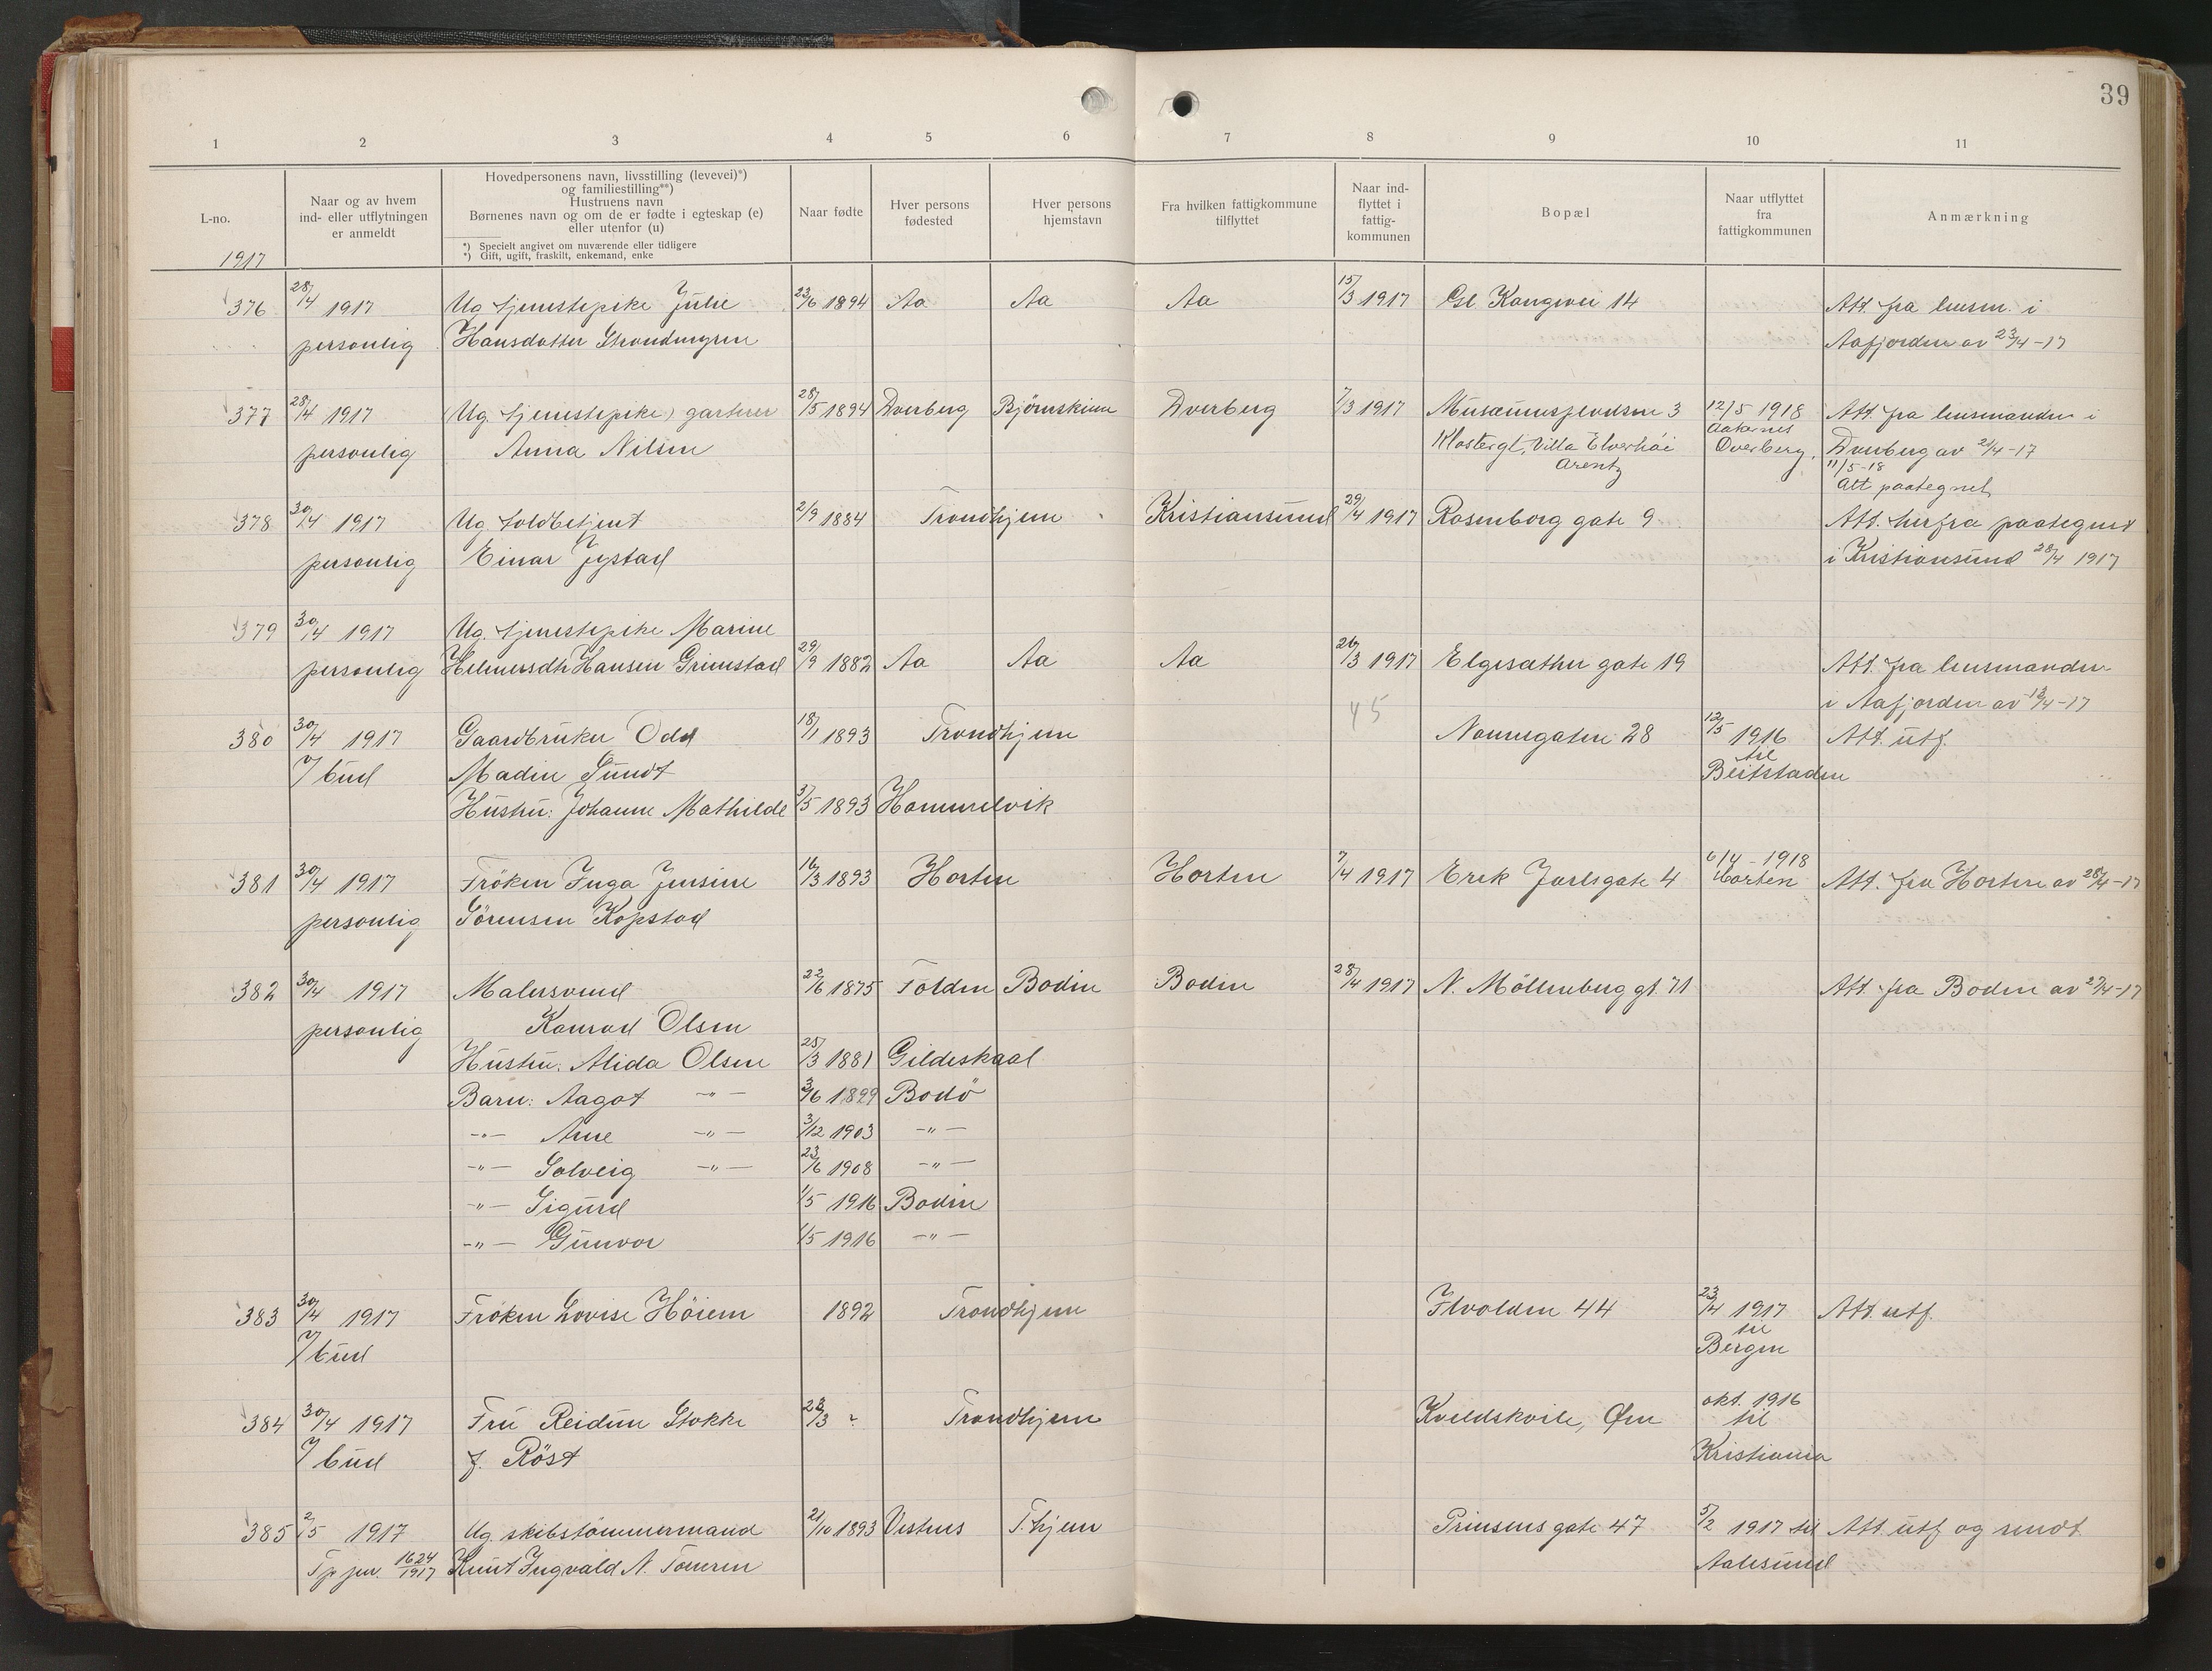 39
1 2 3 4 5 6 7 8 9 10 11
L-no.
1917
Naar og av hvem
ind- eller utflytningen
er anmeldt
Hovedpersonens navn, livsstilling (levevei)*)
og familiestilling**)
Hustruens navn
Børnenes navn og om de er fødte i egteskap (e)
eller utenfor (u)
*) Specielt angivet om nuværende eller tidligere
*) Gift, ugift, fraskilt, enkemand, enke
Naar fødte
Hver persons
fødested
Hver persons
hjemstavn
Fra hvilken fattigkommune
tilflyttet
Naar ind-
flyttet i
fattig-
kommunen
Bopæl
Naar utflyttet
fra
fattigkommunen
Anmærkning
376 28/4 1917 Ug. tjenestepike Julie 23/6 1894 Aa Aa Aa 15/3 1917 Gl. Kongevei 14 Att. fra lensm. i
personlig Hansdatter Aafjorden av 23/4-17
377 28/4 1917 (Ug. tjenestepike) gartner 28/5 1894 Dverberg Bjørnskinn Dverberg 7/3 1917 Museumsplodsen 3 12/5 1918 Att. fra lensmanden i
personlig Anna Nilsen Klostergt. Villa Elverhøi Aakernes Dverberg av 21/4-17
Arentz Dverberg. 11/5-18
Att paategnet
378 30/4 1917 Ug. toldbetjent 2/9 1884 Trondhjem Kristiansund 29/4 1917 Rosenborg gate 9 Att. herfra paategnet
personlig Einar Jystad i Kristiansund 28/4 1917
379 30/4 1917 Ug. tjenestepike Marine
personlig Helmersdtr Hansen Grimstad 29/9 1882 Aa Aa Aa 26/3 1917 Elgesæther gate 19 Att. fra lensmanden
45 i Aafjorden av 13/4-17
380 30/4 1917 Gaardbruker Odd 18/1 1893 Trondhjem Nonnegaten 28 12/5 1916 Att. utf.
v/ bud Madin Sundt til
Beitstaden
Hustru: Johanne Mathilde 3/5 1893 Hommelvik
381 30/4 1917 Frøken Inga Jensine 16/3 1893 Horten Horten 7/4 1917 Erik Jarlsgate 4 6/4 - 1918 Att. fra Horten av 28/4-17
personlig Sørensen Kopstad Horten
382 30/4 1917 Malersvend 22/6 1875 Folden Bodin Bodin 28/4 1917 N. Møllenberg gt. 71 Att. fra Bodin av 27/4-17
personlig Konrad Olsen
Hustru: Alida Olsen 25/3 1881 Gildeskaal
Barn: Aagot -"- 3/6 1899 Bodö
-"- Arne -"- 3/12 1903 -"-
-"- Solveig -"- 23/6 1908 -"-
-"- Sigurd 1/5 1916 Bodin
-"- Gunvor 1/5 1916 -"-
383 30/4 1917 Frøken Lovise Höiem 1892 Trondhjem Ilvolden 44 23/4 1917 Att. utf.
v/ bud til
Bergen
384 30/4 1917 Fru Reidun Stokke 23/3 ? Trondhjem Kveldskvile, Øen okt. 1916
v/ bud f. Röst til
Kristiania
385 2/5 1917 Ug. skibstömmermand 21/10 1893 Vestnes T.hjem Prinsens gate 47 5/2 1917 til Att. utf og sendt
Tp jnr. 1624/1917 Knut Ingvald N. Tomren Aalesund